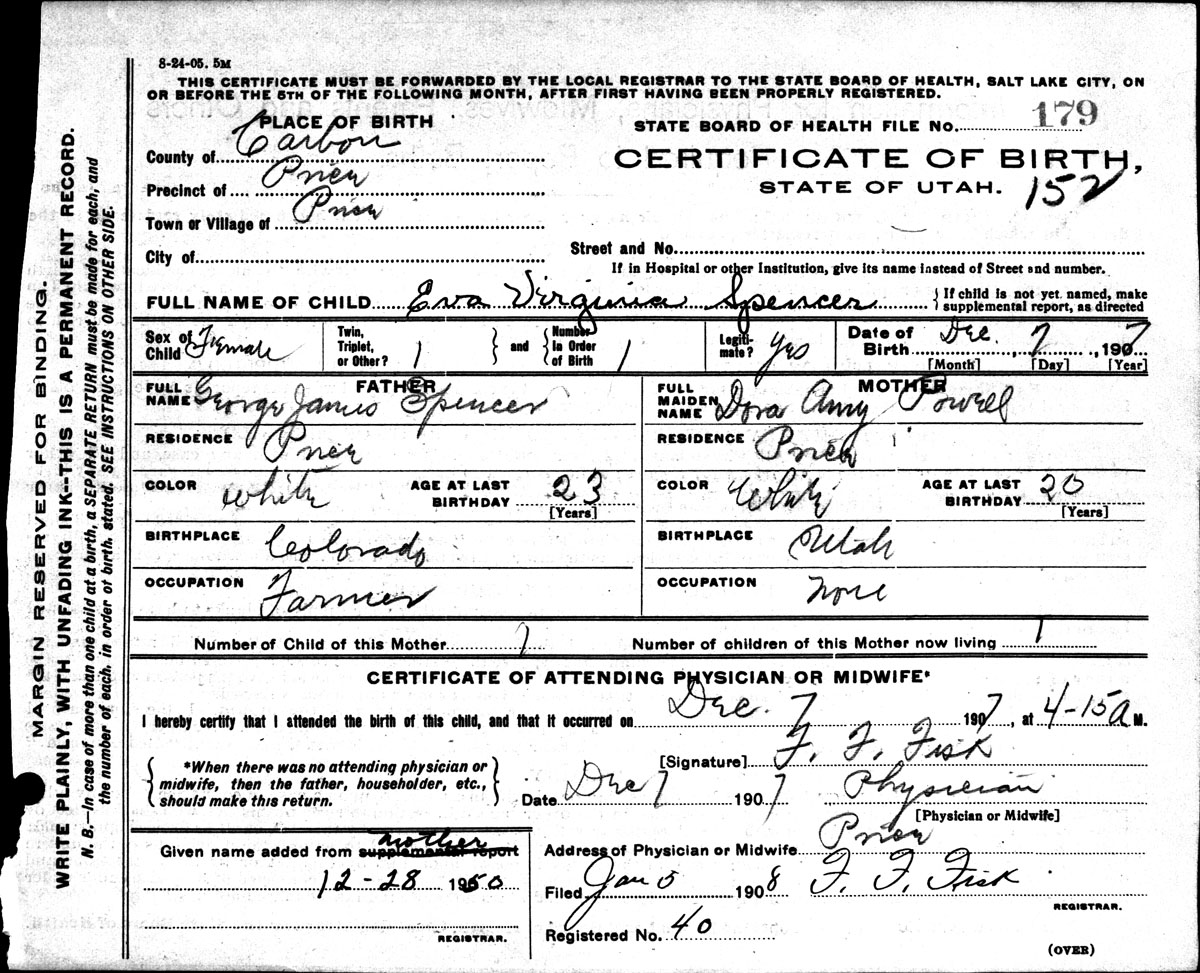 8-24-05. 5M
THIS CERTIFICATE MUST BE FORWARDED BY THE LOCAL REGISTRAR TO THE STATE BOARD OF HEALTH, SALT LAKE CITY, ON
OR BEFORE THE 5TH OF THE FOLLOWING MONTH, AFTER FIRST HAVING BEEN PROPERLY REGISTERED.
PLACE OF BIRTH
STATE BOARD OF HEALTH FILE No. 179
County of Carbon
CERTIFICATE OF BIRTH,
Precinct of Price
STATE OF UTAH. 152
Town or Village of Price
City of
Street and No.
If in Hospital or other Institution, give its name instead of Street and number.
FULL NAME OF CHILD Eva Virginia Spencer { If child is not yet named, make
supplemental report, as directed
Sex of Child Female
Twin, Triplet, or Other? 1 } and { Number in Order of Birth 1
Legiti-mate? Yes
Date of Birth Dec. 7, 1907
[Month] [Day] [Year]
FATHER
FULL NAME George James Spencer
RESIDENCE Price
COLOR White AGE AT LAST BIRTHDAY 23
[Years]
BIRTHPLACE Colorado
OCCUPATION Farmer
MOTHER
FULL MAIDEN NAME Dora Amy Powell
RESIDENCE Price
COLOR White AGE AT LAST BIRTHDAY 20
[Years]
BIRTHPLACE Utah
OCCUPATION None
Number of Child of this Mother 1 Number of children of this Mother now living 1
CERTIFICATE OF ATTENDING PHYSICIAN OR MIDWIFE*
I hereby certify that I attended the birth of this child, and that it occurred on Dec. 7 1907, at 4-15 A M.
{ *When there was no attending physician or
midwife, then the father, householder, etc.,
should make this return. }
[Signature] F. F. Fisk
Date Dec 7 1907 Physician
[Physician or Midwife]
Given name added from supplemental report mother
12-28 1950
REGISTRAR.
Address of Physician or Midwife Price
Filed Jan 5 1908 F. F. Fisk
REGISTRAR.
Registered No. 40
(OVER)
MARGIN RESERVED FOR BINDING.
WRITE PLAINLY, WITH UNFADING INK--THIS IS A PERMANENT RECORD.
N. B.—In case of more than one child at a birth, a SEPARATE RETURN must be made for each, and
the number of each, in order of birth, stated. SEE INSTRUCTIONS ON OTHER SIDE.